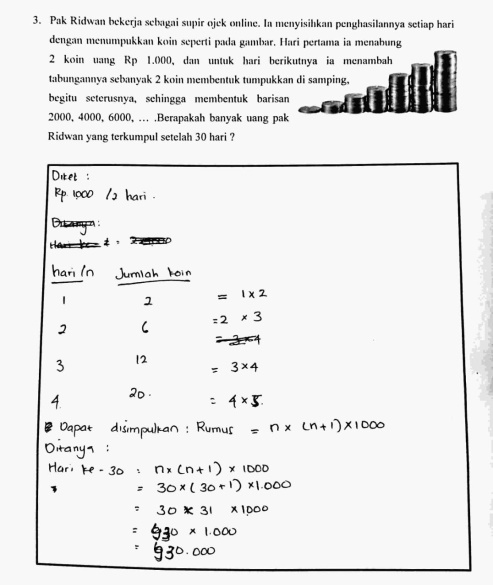 3. Pak Ridwan bekerja sebagai supir ojek online. Ia menyisihkan penghasilannya setiap hari
dengan menumpukkan koin seperti pada gambar. Hari pertama ia menabung
2 koin uang Rp 1.000, dan untuk hari berikutnya ia menambah
tabungannya sebanyak 2 koin membentuk tumpukkan di samping,
begitu seterusnya, sehingga membentuk barisan
2000, 4000, 6000, ... .Berapakah banyak uang pak
Ridwan yang terkumpul setelah 30 hari ?
Diket :
Rp. 1000 /2 hari.
Ditanya:
hari/n Jumlah koin
1 2 = 1 x 2
2 6 = 2 x 3
= 3x4
3 12 = 3x4
4. 20. = 4 x 5.
Dapat disimpulkan : Rumus = n x (n+1) x 1000
Ditanya :
Hari ke - 30 : n x (n+1) x 1000
= 30 x (30+1) x 1.000
= 30 x 31 x 1000
= 930 x 1.000
= 930.000